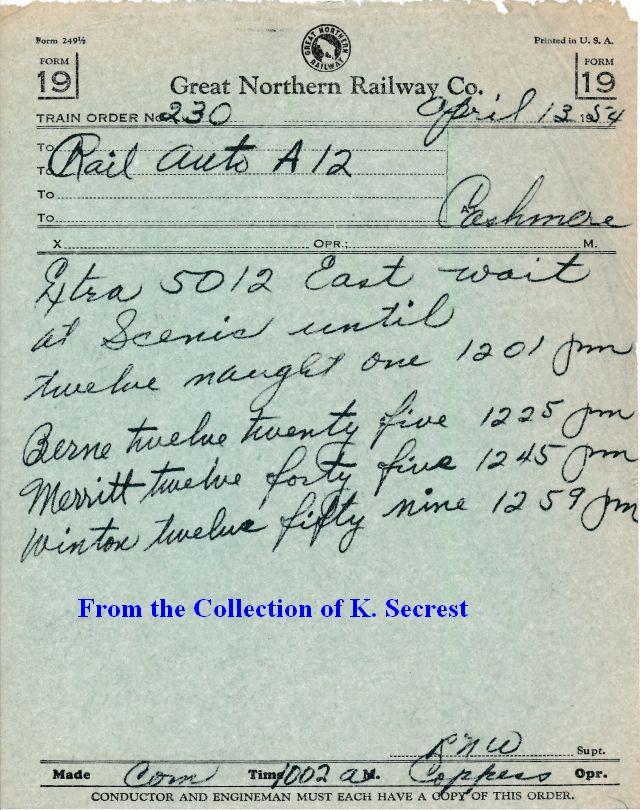 Form 249½
GREAT NORTHERN RAILWAY
Printed in U. S. A.
FORM 19
Great Northern Railway Co.
FORM 19
TRAIN ORDER No. 230 April 13 1954
To Rail Auto A12
To
To
To
At Cashmere
X OPR.; M.
Extra 5012 East wait
at Scenic until
twelve naught one 1201 pm
Berne twelve twenty five 1225 pm
Merritt twelve forty five 1245 pm
Winton twelve fifty nine 1259 pm
From the Collection of K. Secrest
Supt.
Made Com Time 1002 a M. Coppess Opr.
CONDUCTOR AND ENGINEMAN MUST EACH HAVE A COPY OF THIS ORDER.